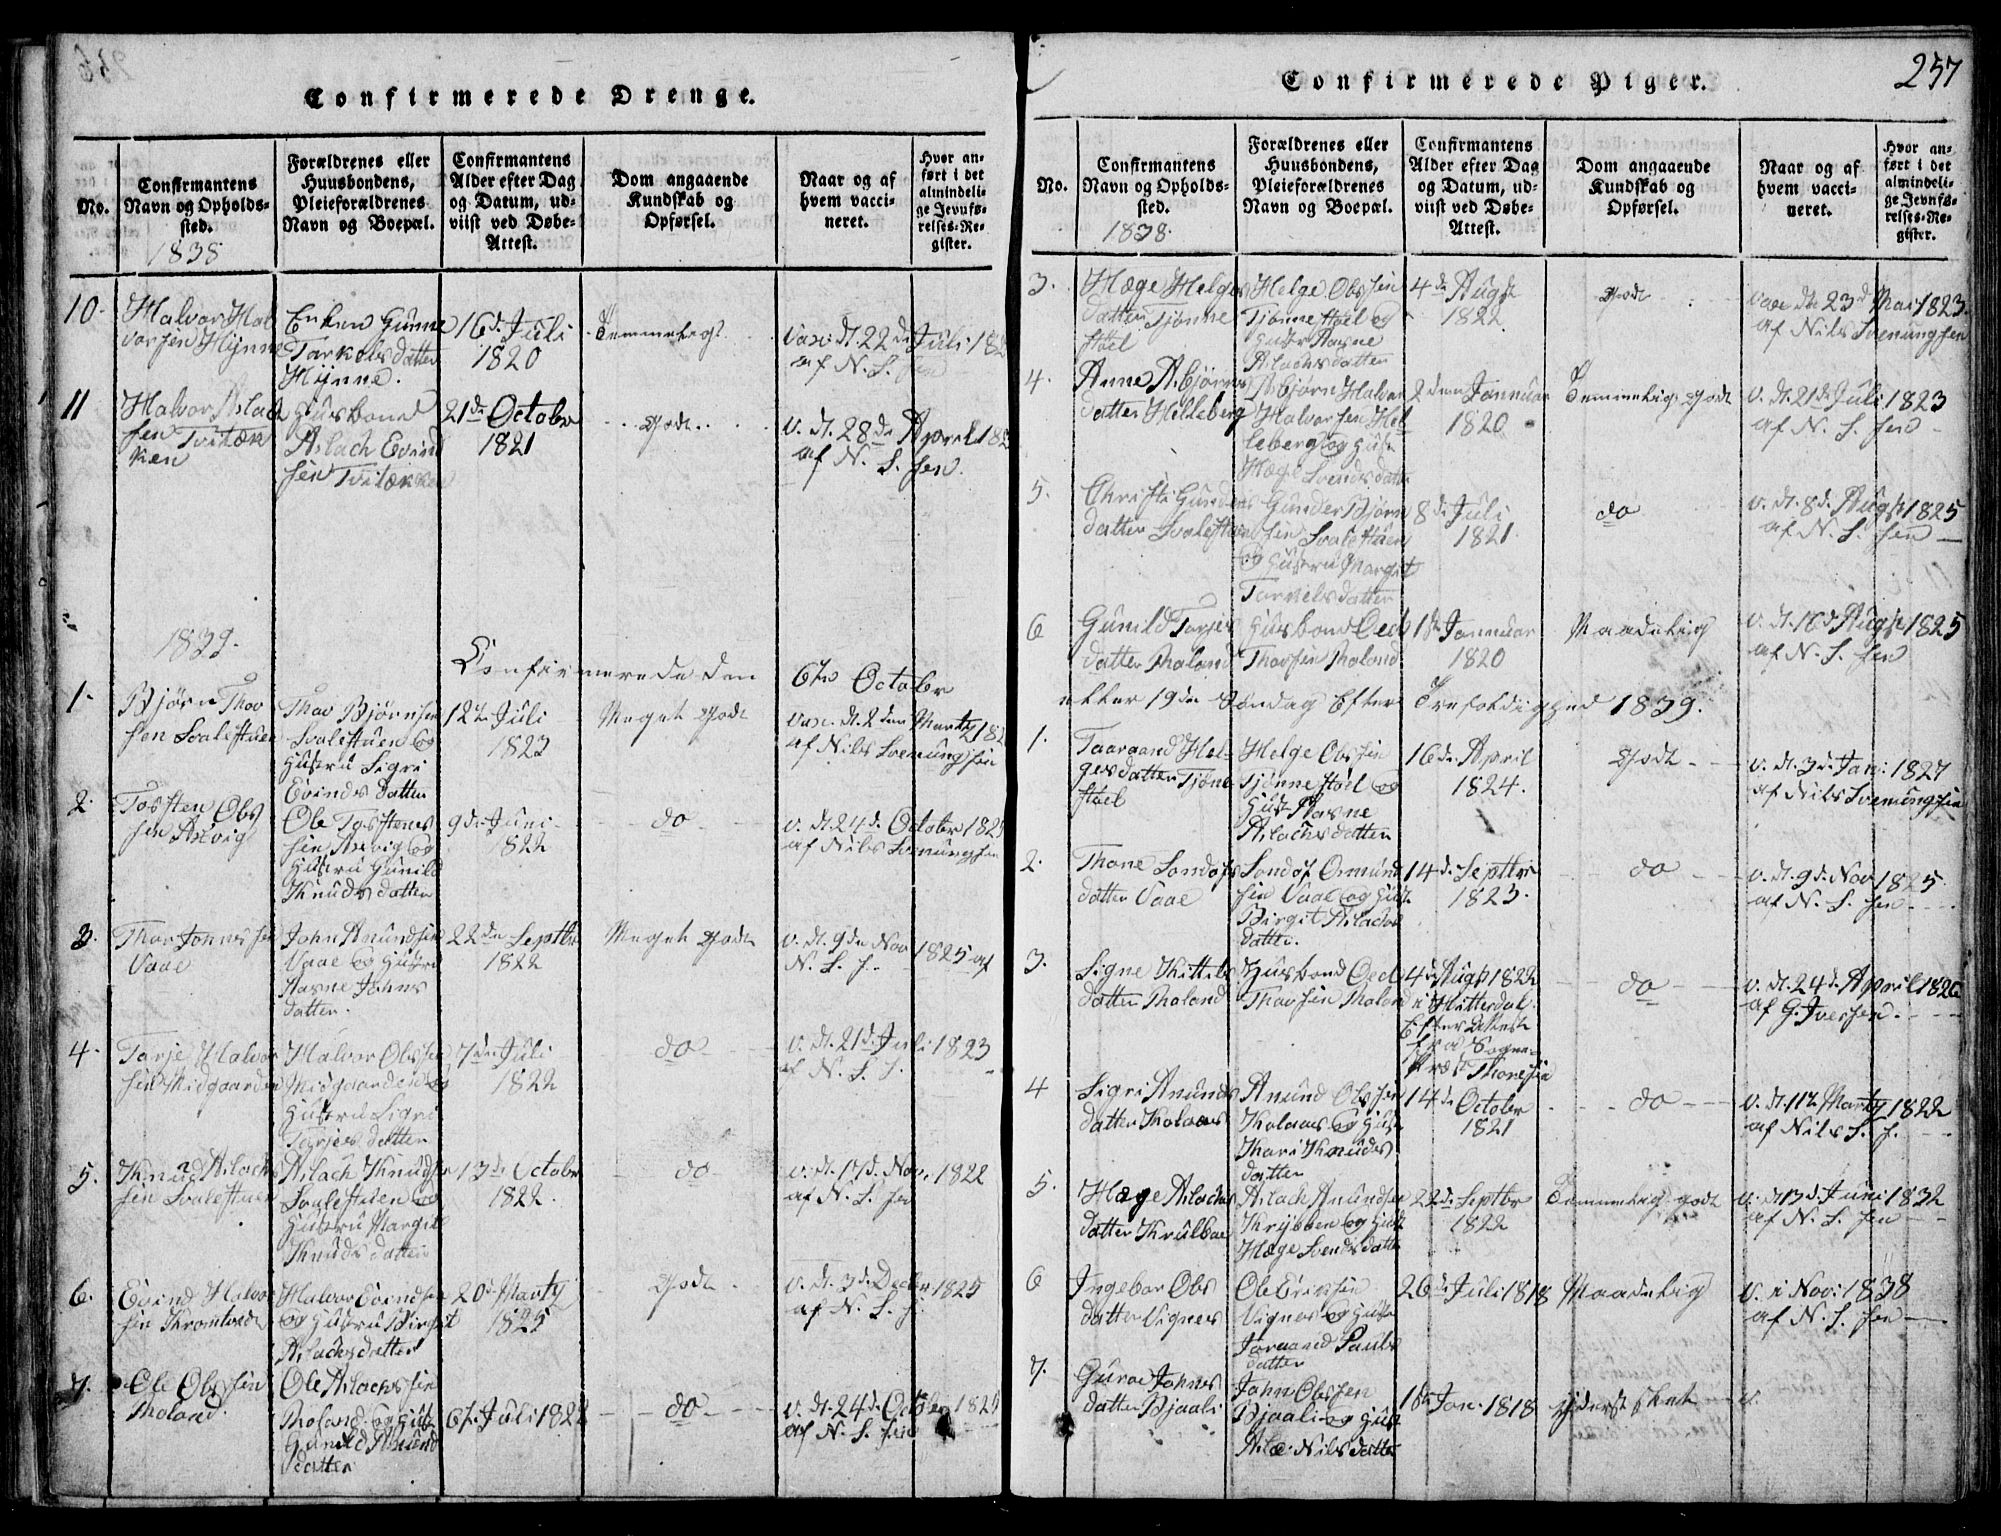 Confirmerede Drenge.
No.
Confirmantens
Navn og Opholds-
sted.
1838
Forældrenes eller
Huusbondens,
Pleieforældrenes
Navn og Boepæl.
Confirmantens
Alder efter Dag
og Datum, ud-
viist ved Døbe-
Attest.
Dom angaaende
Kundskab og
Opførsel.
Naar og af
hvem vacci-
neret.
Hvor an-
ført i det
almindeli-
ge Jevnfø-
relses-Re-
gister.
10.
Halvor Hal
vorsen
Tarkelsdatter
16d. Juli
1820
Vaxi: dt. 22d. Juli 182
af N. S. sen
11
Halvor Aslach
sen
Husbond
Aslach Evind
sen
21de October
1821
Godt
v. dt. 28de April 182
af N. S. sen.
1839.
Confirmerede den 6te October
1.
Bjørn Thov
sen Svalestuen
Thov Bjørnsen
Svalestuen og
Hustru Sigri
Evinds datter
12te Juli
1823
Meget Godt
Vaxi. dt. 2den Marty 182
af Nils Svenungsen
2.
Tosten Ols
sen Axvig
Ole Tostens
sen Axvig og
Hustru Gunild
Knuds datter
9de Juni
1822
do
v. dt. 24d. October 1825
af Nils Svenungsen
3.
Vaae
John Anundsen
Vaae og Hustru
Johns
datter.
22de Septbr
1822
Meget Godt
v. dt. 9de Nov 1825 af
N. S. s.
4.
Tarje Halvor
sen Midgaarden
Halvor Olssen
Midgaarden og
Hustru Sigri
Tarjes datter
7de Juli
1822
do
v. dt. 21d. Juli 1823
af N. S. s.
5.
Knud Aslachs
sen Svalestuen
Aslach Knudsen
Svalestuen og
Hustru Margit
Knuds datter
13de October
1822.
do
v. dt. 17d. Nov. 1822
af N. S. sen
6.
Evind Halvor
sen
Halvor Evindsen
og Hustru Birgit
Aslachsdatter
20d. Marty
1825
Godt
v. dt. 3d. Decbr 1825
af N. S. s.
7.
Ole Olssen
Moland.
Ole Aslachssen
Moland og Hust
Gunild Anund
datter
6te Juli 1822
do
v. dt. 24d. Octobr 1825
af N. S. sen
Confirmerede Piger.
257
No.
Confirmantens
Navn og Opholds-
sted.
1838.
Forældrenes eller
Huusbondens,
Pleieforældrenes
Navn og Boepæl.
Confirmantens
Alder efter Dag
og Datum, ud-
viist ved Døbe-
Attest.
Dom angaaende
Kundskab og
Opførsel.
Naar og af
hvem vacci-
neret.
Hvor an-
ført i det
almindeli-
ge Jevnfø-
relses-Re-
gister.
3.
Hæge Helges
datter Tjønne
støel
Helge Olssen
Tjønnestøel og
Aslachsdatter
4de Augst
1822
Godt
Vax dt. 23d Mai 1823
af Nils Svenungsen
4.
Anne Asbjørns
datter Helleberg
Asbjørn Halvor
Halvorsen Hel
leberg og Hust
Hæge Svendsdatter
2den Januar
1820
Temmelig Godt
v. dt. 21de Juli 1823
af N. S. sen
5.
Christi Gunders
datter Svalestuen
Gunder Bjørn
sen Svalestuen
og Hustru Margit
Tarkelsdatter
8de Juli
1821.
do
v. dt. 8d. Augst 1825
af N. S. sen
6
Gunild Tarjes
datter Moland
Husbond
Thovsen Moland
1ste Januar
1820
Maadelig
v. dt. 16d. Augst 1825
af N. S. sen
19de Søndag Efter Trefoldighed 1839.
1.
Taaraand Hel-
gesdatter Tjøne
støel
Helge Olssen
Tjønnestøel og
Aslachsdatter
16de April
1824.
Godt
v. dt. 3d. Jan: 1827
af Nils Svenungsen
2.
Thone Sondofs
datter Vaae
Sondof Omund
sen Vaae og Hust
Birgit Aslachs
datter.
14de Septbr
1823.
do
v. dt. 9d. Nov 1825.
af N. S. sen
3.
Signe Kittels
datter Moland
Husbond
Thovsen Moland
4d. Augst 1822
i Hitterdal
Efter Attest
fra Sogne-
Præst
do
v. dt. 24d. April 1826
af G. Iversen.
4
Sigri Anunds
datter Kolaas
Anund Olssen
Kolaas og Hust
Kari Knuds
datter
14de October
1821
do
v. dt. 11te Marty 1822
af Nils S. s.
5.
Hæge Aslachs
datter
Aslach Anundsen
og Hust
Hæge Svendsdatter
22de Septbr
1822
Temmelig godt
v. dt 13d. Juni 1832
af N. S. sen
6
Ingebor Ols
datter Vignes
Ole Erixsen
Vignes og Hust
Joraand Pauls
datter
26de Juli 1818
Maadelig
v. i Nov: 1838
af N. S. sen
7.
Guroe Johns
datter Bjaali
John Olssen
Bjaali og Hust
Nilsdatter
15de Jan. 1818
yderst slet
v.